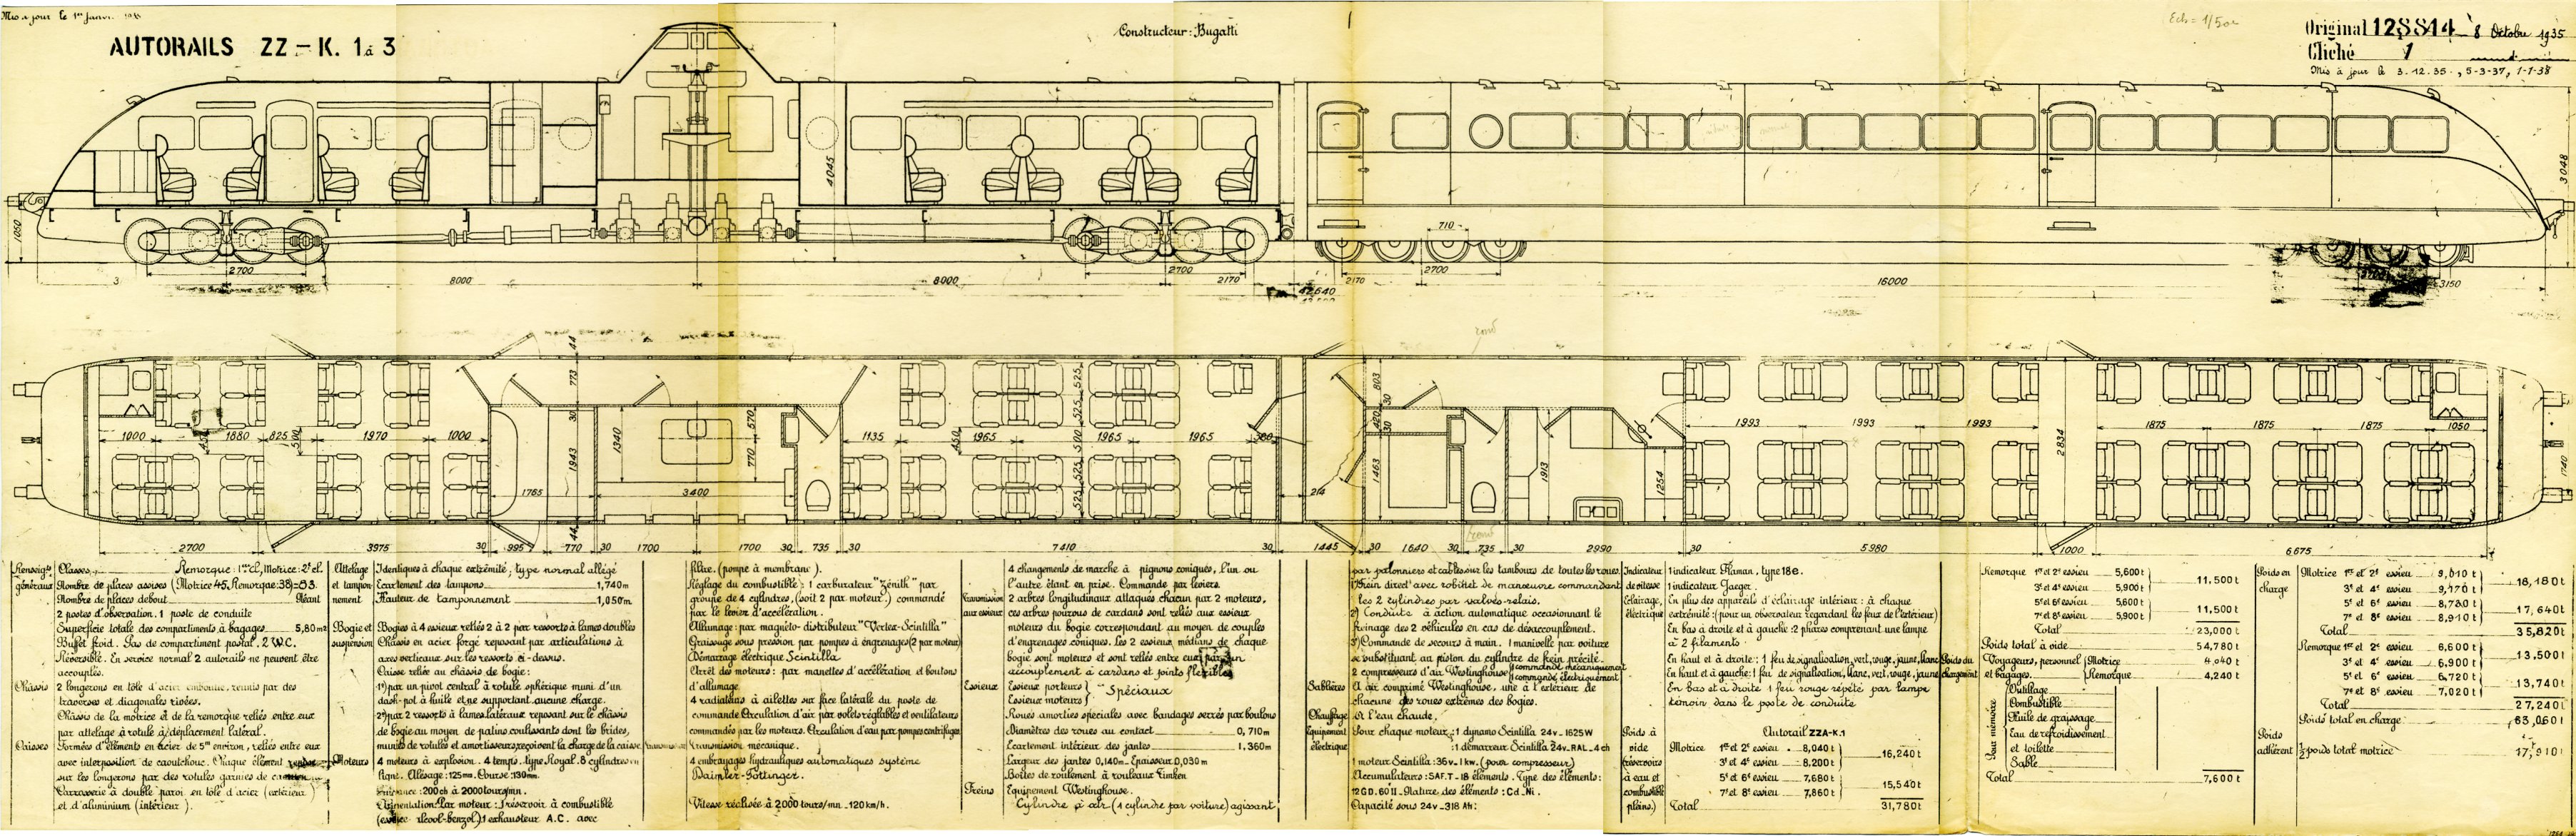 Mis à jour le 1er Janv.
AUTORAILS ZZ - K. 1 à 3
Constructeur : Bugatti
Ech = 1/50e
Original 12S814 8 Octobre 1935
Cliché 1
Mis à jour le 3.12.35., 5-3-37, 1-1-38
4045
3048
1050
710
2700
8000
8000
2700
2170
42640
2170
2700
16000
3150
rond
44
773
30
1340
1943
570
770
525
525
500
525
525
803
30
420
30
1463
1913
1254
2834
1740
1000
450
1880
825
500
1970
1000
1135
450
1965
1965
1965
380
1993
1993
1993
1875
1875
1875
1050
1765
3400
214
44
rond
2700
3975
30
995
770
30
1700
1700
30
735
30
7410
30
1445
30
1640
735
30
2990
30
5980
1000
6675
Renseigts généraux
Classes Remorque : 1ère cl, Motrice : 2e cl.
Nombre de places assises (Motrice 45, Remorque : 38) = 83
Nombre de places debout Néant
2 postes d'observation. 1 poste de conduite
Superficie totale des compartiments à bagages 5,80 m2
Buffet froid. Pas de compartiment postal. 2 W.C.
Réversible. En service normal 2 autorails ne peuvent être
accouplés.
Chassis
2 longerons en tôle d'acier emboutie, réunis par des
traverses et diagonales rivées.
Châssis de la motrice et de la remorque reliés entre eux
par attelage à rotule à déplacement latéral.
Caisses
Formées d'éléments en acier de 5m environ, reliés entre eux
avec interposition de caoutchouc. Chaque élément
sur les longerons par des rotules garnies de
Carrosserie à double paroi en tôle d'acier (extérieur)
et d'aluminium (intérieur).
Attelage et tamponnement
Identiques à chaque extrémité ; type normal allégé
Ecartement des tampons 1,740 m
Hauteur de tamponnement 1,050 m
Bogie et suspension
Bogies à 4 essieux reliés 2 à 2 par ressorts à lames doubles
Châssis en acier forgé reposant par articulations à
axes verticaux sur les ressorts ci-dessus.
Caisse reliée au châssis de bogie :
1°) par un pivot central à rotule sphérique muni d'un
dash-pot à huile et ne supportant aucune charge.
2°) par 2 ressorts à lames latéraux reposant sur le châssis
de bogie au moyen de patins coulissants dont les brides,
munies de rotules et amortisseurs, reçoivent la charge de la caisse.
Moteurs
4 moteurs à explosion. 4 temps, type Royal. 8 cylindres en
ligne. Alésage : 125mm. Course : 130mm.
Puissance : 200 ch à 2000 tours/mn.
Alimentation Par moteur : 1 réservoir à combustible
(essence alcool-benzol) 1 exhausteur A.C. avec
filtre. (pompe à membrane).
Réglage du combustible : 1 carburateur "Zénith" par
groupe de 4 cylindres, (soit 2 par moteur) commandé
par le levier d'accélération.
Allumage : par magnéto-distributeur "Vertex-Scintilla"
Graissage sous pression par pompes à engrenages (2 par moteur)
Démarrage électrique Scintilla
Arrêt des moteurs : par manettes d'accélération et boutons
d'allumage.
4 radiateurs à ailettes sur face latérale du poste de
commande Circulation d'air par volets réglables et ventilateurs
commandés par les moteurs. Circulation d'eau par pompes centrifuges
Transmission
Transmission mécanique.
4 embrayages hydrauliques automatiques système
Daimler-Fottinger.
Vitesse réalisée à 2000 tours/mn - 120 km/h.
4 changements de marche à pignons coniques, l'un ou
l'autre étant en prise. Commande par leviers.
Transmission aux essieux
2 arbres longitudinaux attaqués chacun par 2 moteurs,
ces arbres pourvus de cardans sont reliés aux essieux
moteurs du bogie correspondant au moyen de couples
d'engrenages coniques. Les 2 essieux médians de chaque
bogie sont moteurs et sont reliés entre eux par un
accouplement à cardans et joints flexibles
Essieux
Essieux porteurs
Essieux moteurs } Spéciaux
Roues amorties spéciales avec bandages serrés par boulons
Diamètres des roues au contact 0,710 m
Ecartement intérieur des jantes 1,360 m
Largeur des jantes 0,140m - Epaisseur 0,030 m
Boîtes de roulement à rouleaux Timken
Freins
Equipement Westinghouse.
Cylindre à air (1 cylindre par voiture) agissant
par palonniers et cables sur les tambours de toutes les roues.
1°) Frein direct avec robinet de manœuvre commandant
les 2 cylindres par valves-relais.
2°) Conduite à action automatique occasionnant le
freinage des 2 véhicules en cas de désaccouplement.
3°) Commande de secours à main. 1 manivelle par voiture
se substituant au piston du cylindre de frein précité.
2 compresseurs d'air Westinghouse { 1 commandé mécaniquement
1 commandé électriquement
Sablières
A air comprimé Westinghouse, une à l'extérieur de
chacune des roues extrêmes des bogies.
Chauffage
A l'eau chaude.
Equipement électrique
Pour chaque moteur : 1 dynamo Scintilla 24v - 1625W
: 1 démarreur Scintilla 24v. RAL - 4 ch
1 moteur Scintilla : 36v - 1 kw. (pour compresseur)
Accumulateurs : SAF.T - 18 éléments. Type des éléments :
12 GD. 60 II - Nature des éléments : Cd - Ni.
Capacité sous 24v - 318 Ah :
Indicateur de vitesse
1 indicateur Flaman, type 18e.
1 indicateur Jaeger.
Eclairage électrique
En plus des appareils d'éclairage intérieur : à chaque
extrémité : (pour un observateur regardant les feux de l'extérieur)
En bas à droite et à gauche : 2 phares comprenant une lampe
à 2 filaments.
En haut et à droite : 1 feu de signalisation, vert, rouge, jaune, blanc
En haut et à gauche : 1 feu de signalisation, blanc, vert, rouge, jaune
En bas et à droite 1 feu rouge répété par lampe
témoin dans le poste de conduite
Poids à vide (réservoirs à eau et combustible pleins)
Autorail ZZA-K.1
Motrice 1er et 2e essieu 8,040 t
3e et 4e essieu 8,200 t
16,240 t
5e et 6e essieu 7,680 t
7e et 8e essieu 7,860 t
15,540 t
Total 31,780 t
Remorque 1er et 2e essieu 5,600 t
3e et 4e essieu 5,900 t
11,500 t
5e et 6e essieu 5,600 t
7e et 8e essieu 5,900 t
11,500 t
Total 23,000 t
Poids total à vide 54,780 t
Poids du chargement
Voyageurs, personnel et bagages. { Motrice 4,040 t
Remorque 4,240 t
Pour mémoire
Outillage
Combustible
Huile de graissage
Eau de refroidissement
et toilette
Sable
Total 7,600 t
Poids en charge
Motrice 1er et 2e essieu 9,010 t
3e et 4e essieu 9,170 t
18,180 t
5e et 6e essieu 8,730 t
7e et 8e essieu 8,910 t
17,640 t
Total 35,820 t
Remorque 1er et 2e essieu 6,600 t
3e et 4e essieu 6,900 t
13,500 t
5e et 6e essieu 6,720 t
7e et 8e essieu 7,020 t
13,740 t
Total 27,240 t
Poids total en charge 63,060 t
Poids adhérent
1/2 poids total motrice 17,910 t